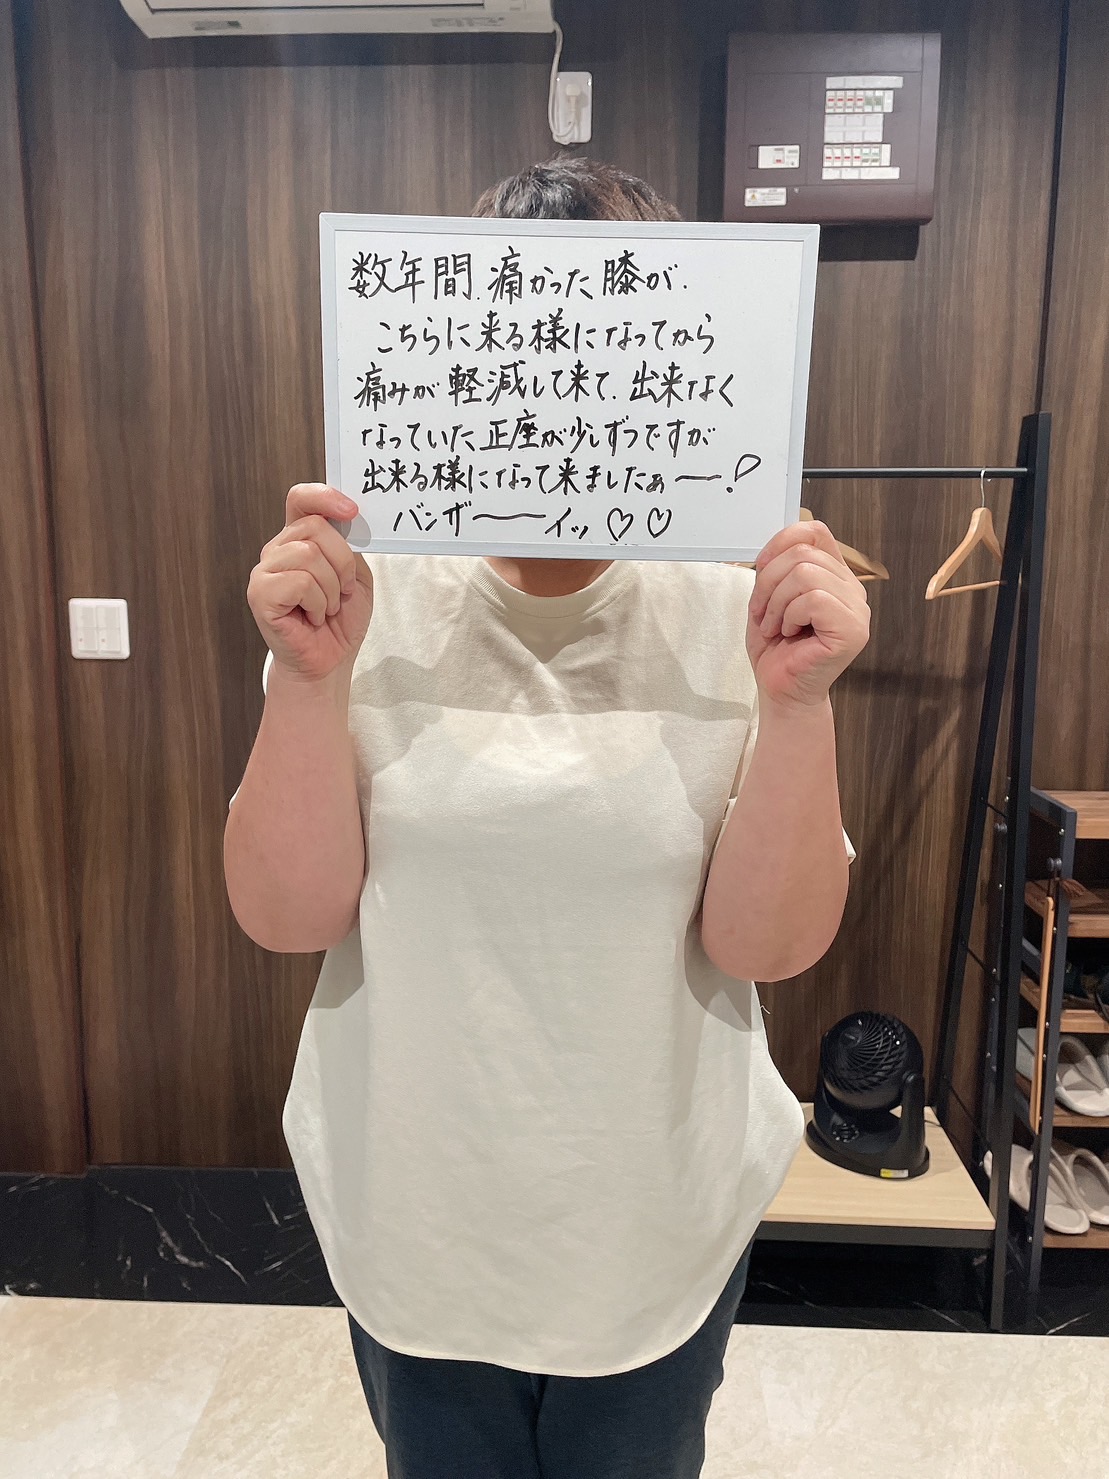 数年間、痛かった膝が、
こちらに来る様になってから
痛みが軽減して来て、出来なく
なっていた正座が少しずつですが
出来る様になって来ましたぁー！
バンザーイッ♡♡